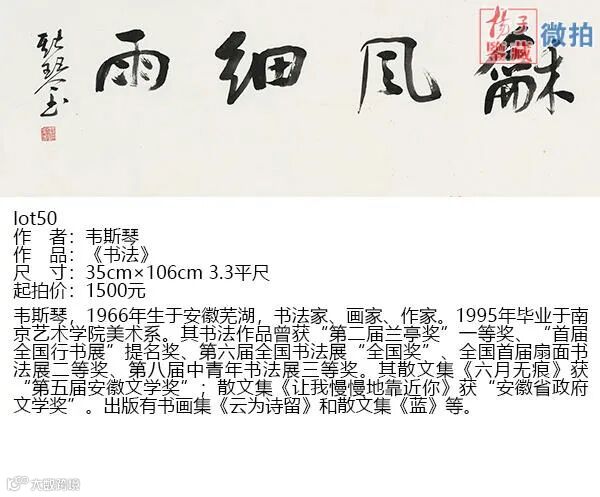 龢風細雨
扬子
鉴藏
微拍
lot50
作 者：韦斯琴
作 品：《书法》
尺 寸：35cm×106cm 3.3平尺
起拍价：1500元
韦斯琴，1966年生于安徽芜湖，书法家、画家、作家。1995年毕业于南
京艺术学院美术系。其书法作品曾获“第二届兰亭奖”一等奖、“首届
全国行书展”提名奖、第六届全国书法展“全国奖”、全国首届扇面书
法展二等奖、第八届中青年书法展三等奖。其散文集《六月无痕》获
“第五届安徽文学奖”；散文集《让我慢慢地靠近你》获“安徽省政府
文学奖”。出版有书画集《云为诗留》和散文集《蓝》等。
大咸资讯